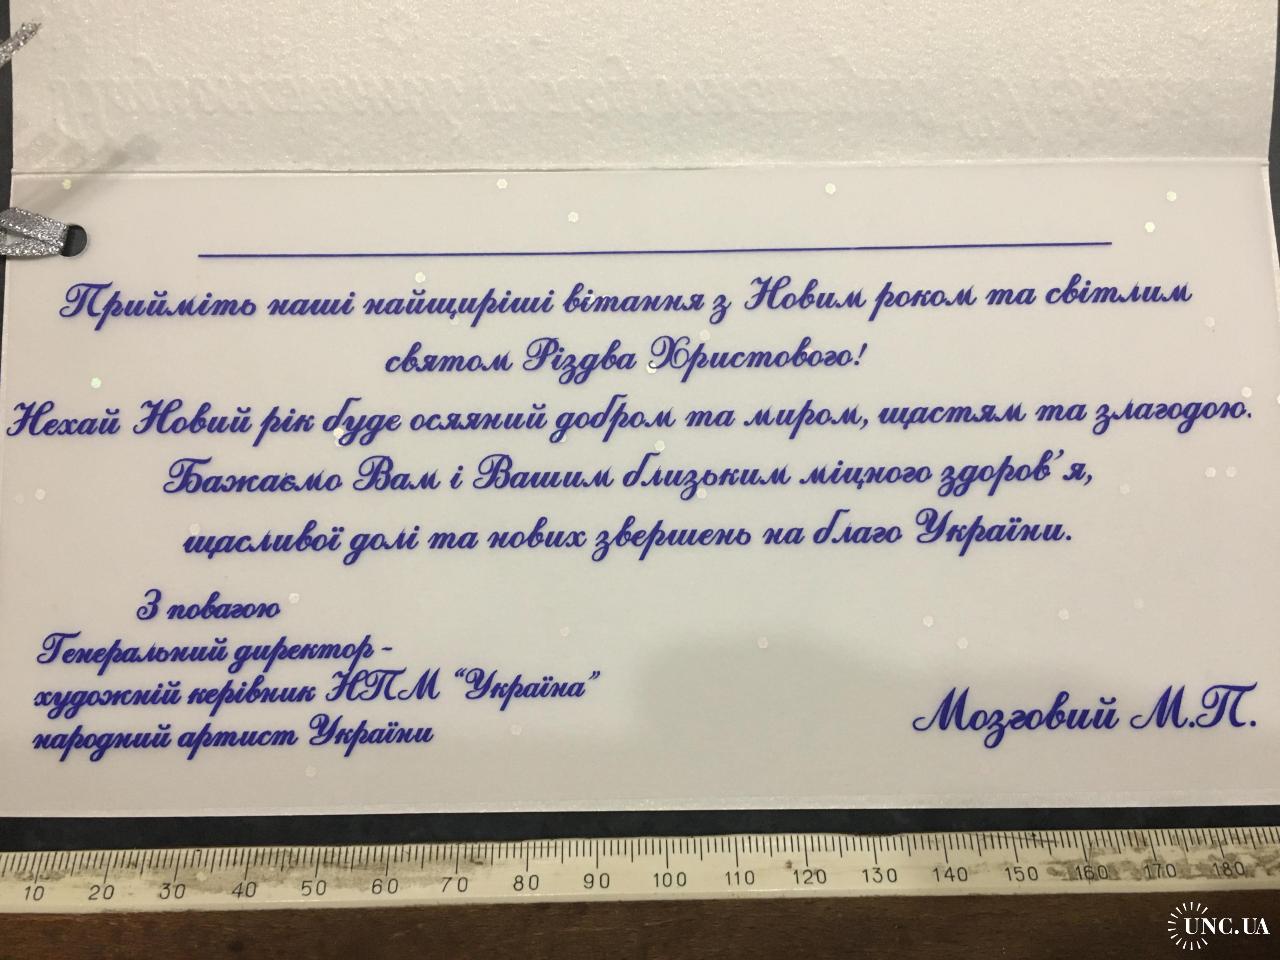 Прийміть наші найщиріші вітання з Новим роком та світлим
святом Різдва Христового!
Нехай Новий рік буде осяяний добром та миром, щастям та злагодою.
Бажаємо Вам і Вашим близьким міцного здоров’я,
щасливої долі та нових звершень на благо України.
З повагою
Генеральний директор -
художній керівник НПМ “Україна”
народний артист України
Мозговий М.П.
10 20 30 40 50 60 70 80 90 100 110 120 130 140 150 160 170 180
UNC.UA